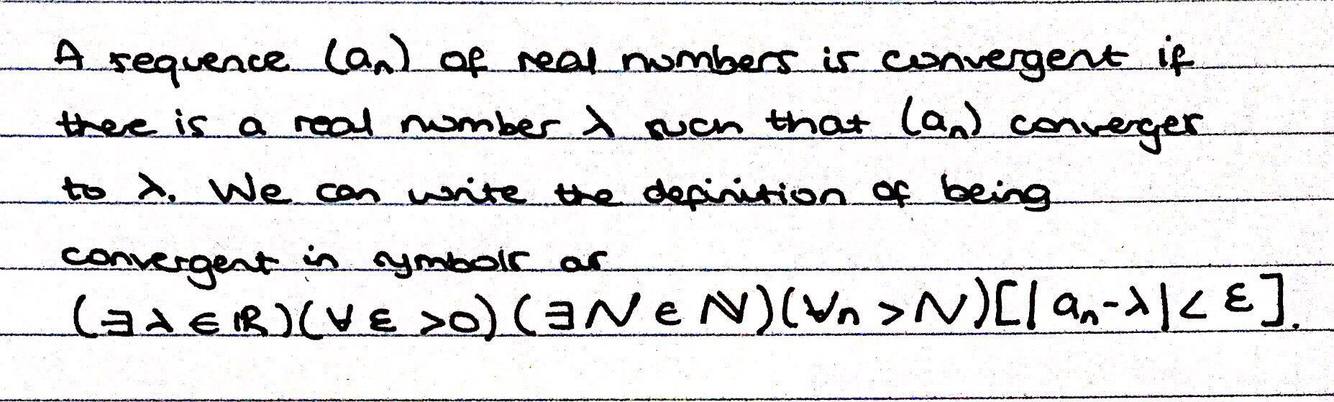 A sequence (aₙ) of real numbers is convergent if
there is a real number λ such that (aₙ) converges
to λ. We can write the definition of being
convergent in symbols as
(∃λ∈ℝ)(∀ε>0)(∃N∈ℕ)(∀n>N)[|aₙ-λ|<ε].